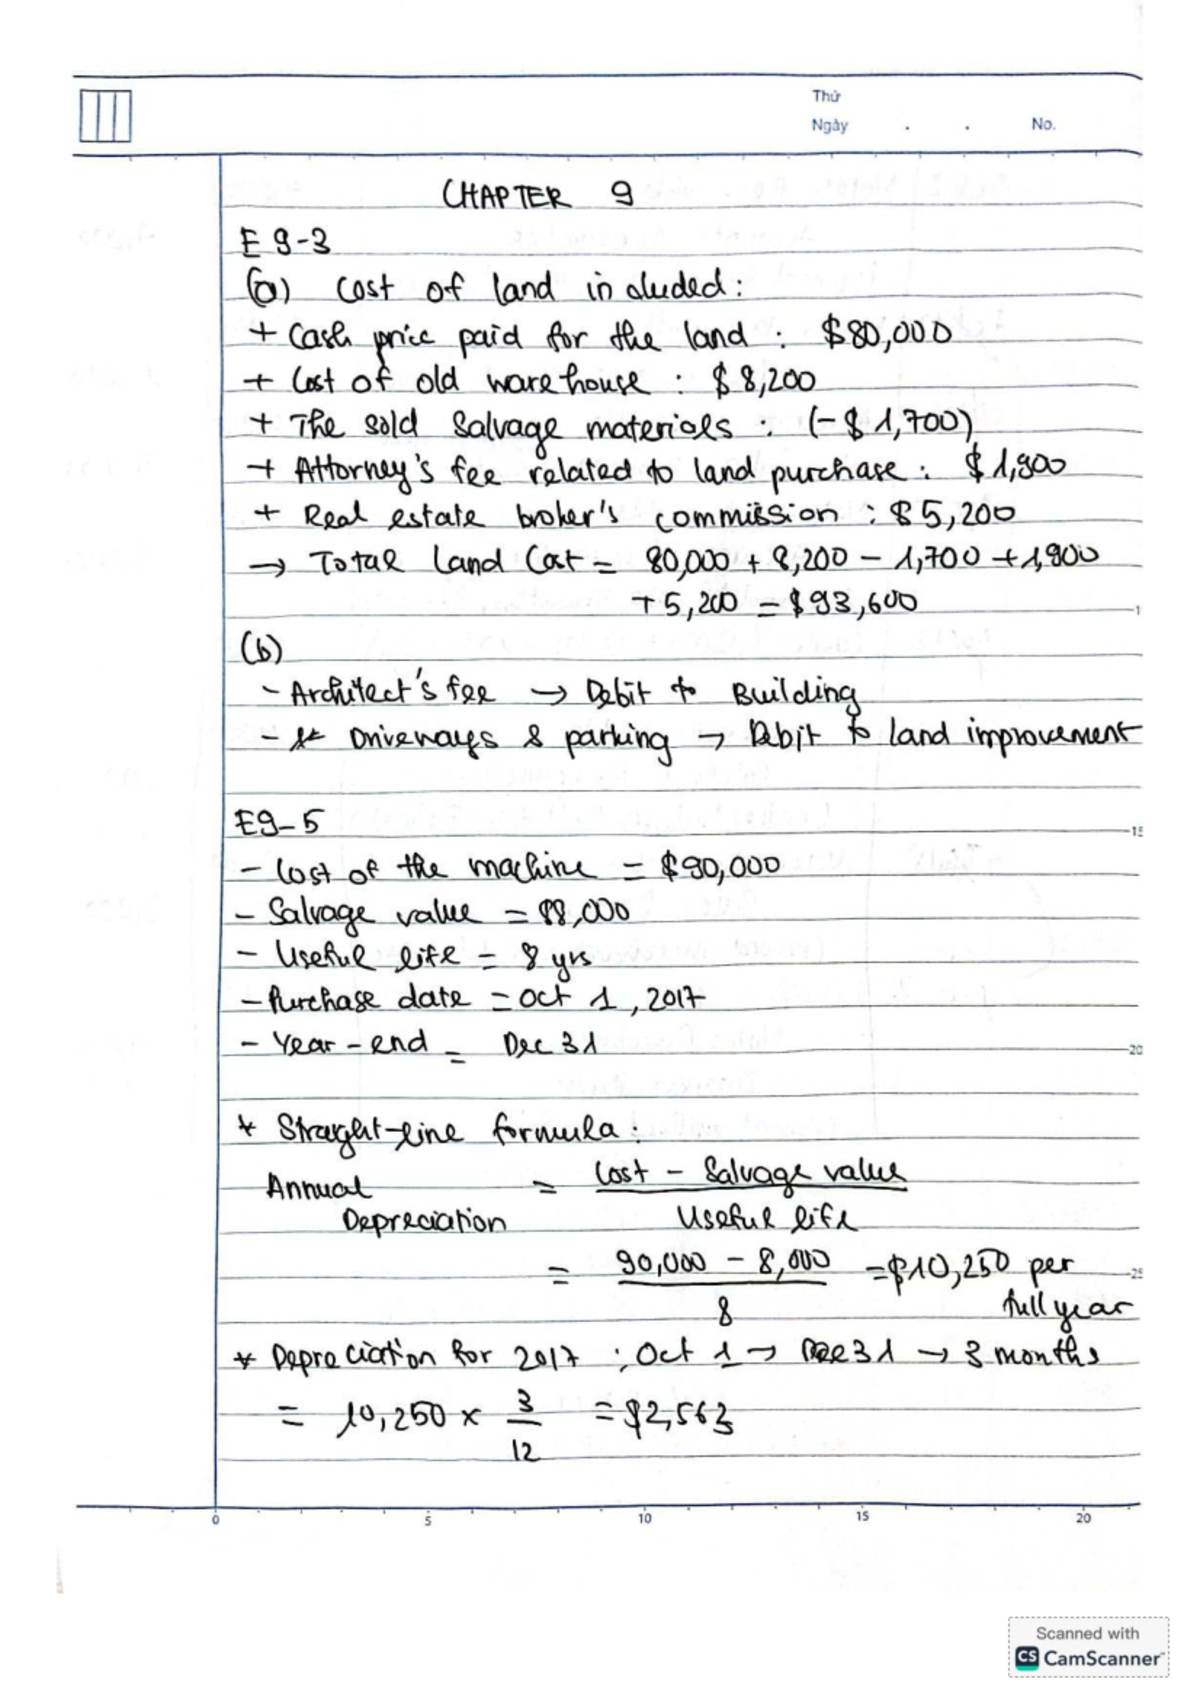 Thứ
Ngày . . No.
CHAPTER 9
E 9-3
(a) Cost of land included:
+ Cash price paid for the land : $80,000
+ Cost of old warehouse : $8,200
+ The sold Salvage materials : (-$1,700)
+ Attorney's fee related to land purchase : $1,900
+ Real estate broker's commission : $5,200
→ Total Land Cost = 80,000 + 8,200 - 1,700 + 1,900
+ 5,200 = $93,600
(b)
- Architect's fee → Debit to Building
- Driveways & parking → Debit to land improvement
E9-5
- Cost of the machine = $90,000
- Salvage value = $8,000
- Useful life = 8 yrs
- Purchase date = Oct 1, 2017
- Year-end = Dec 31
* Straght-line formula:
Annual Depreciation = Cost - Salvage value / Useful life
= 90,000 - 8,000 / 8 = $10,250 per full year
* Depreciation for 2017 : Oct 1 → Dec 31 → 3 months
= 10,250 × 3/12 = $2,563
0 5 10 15 20
Scanned with
CS CamScanner